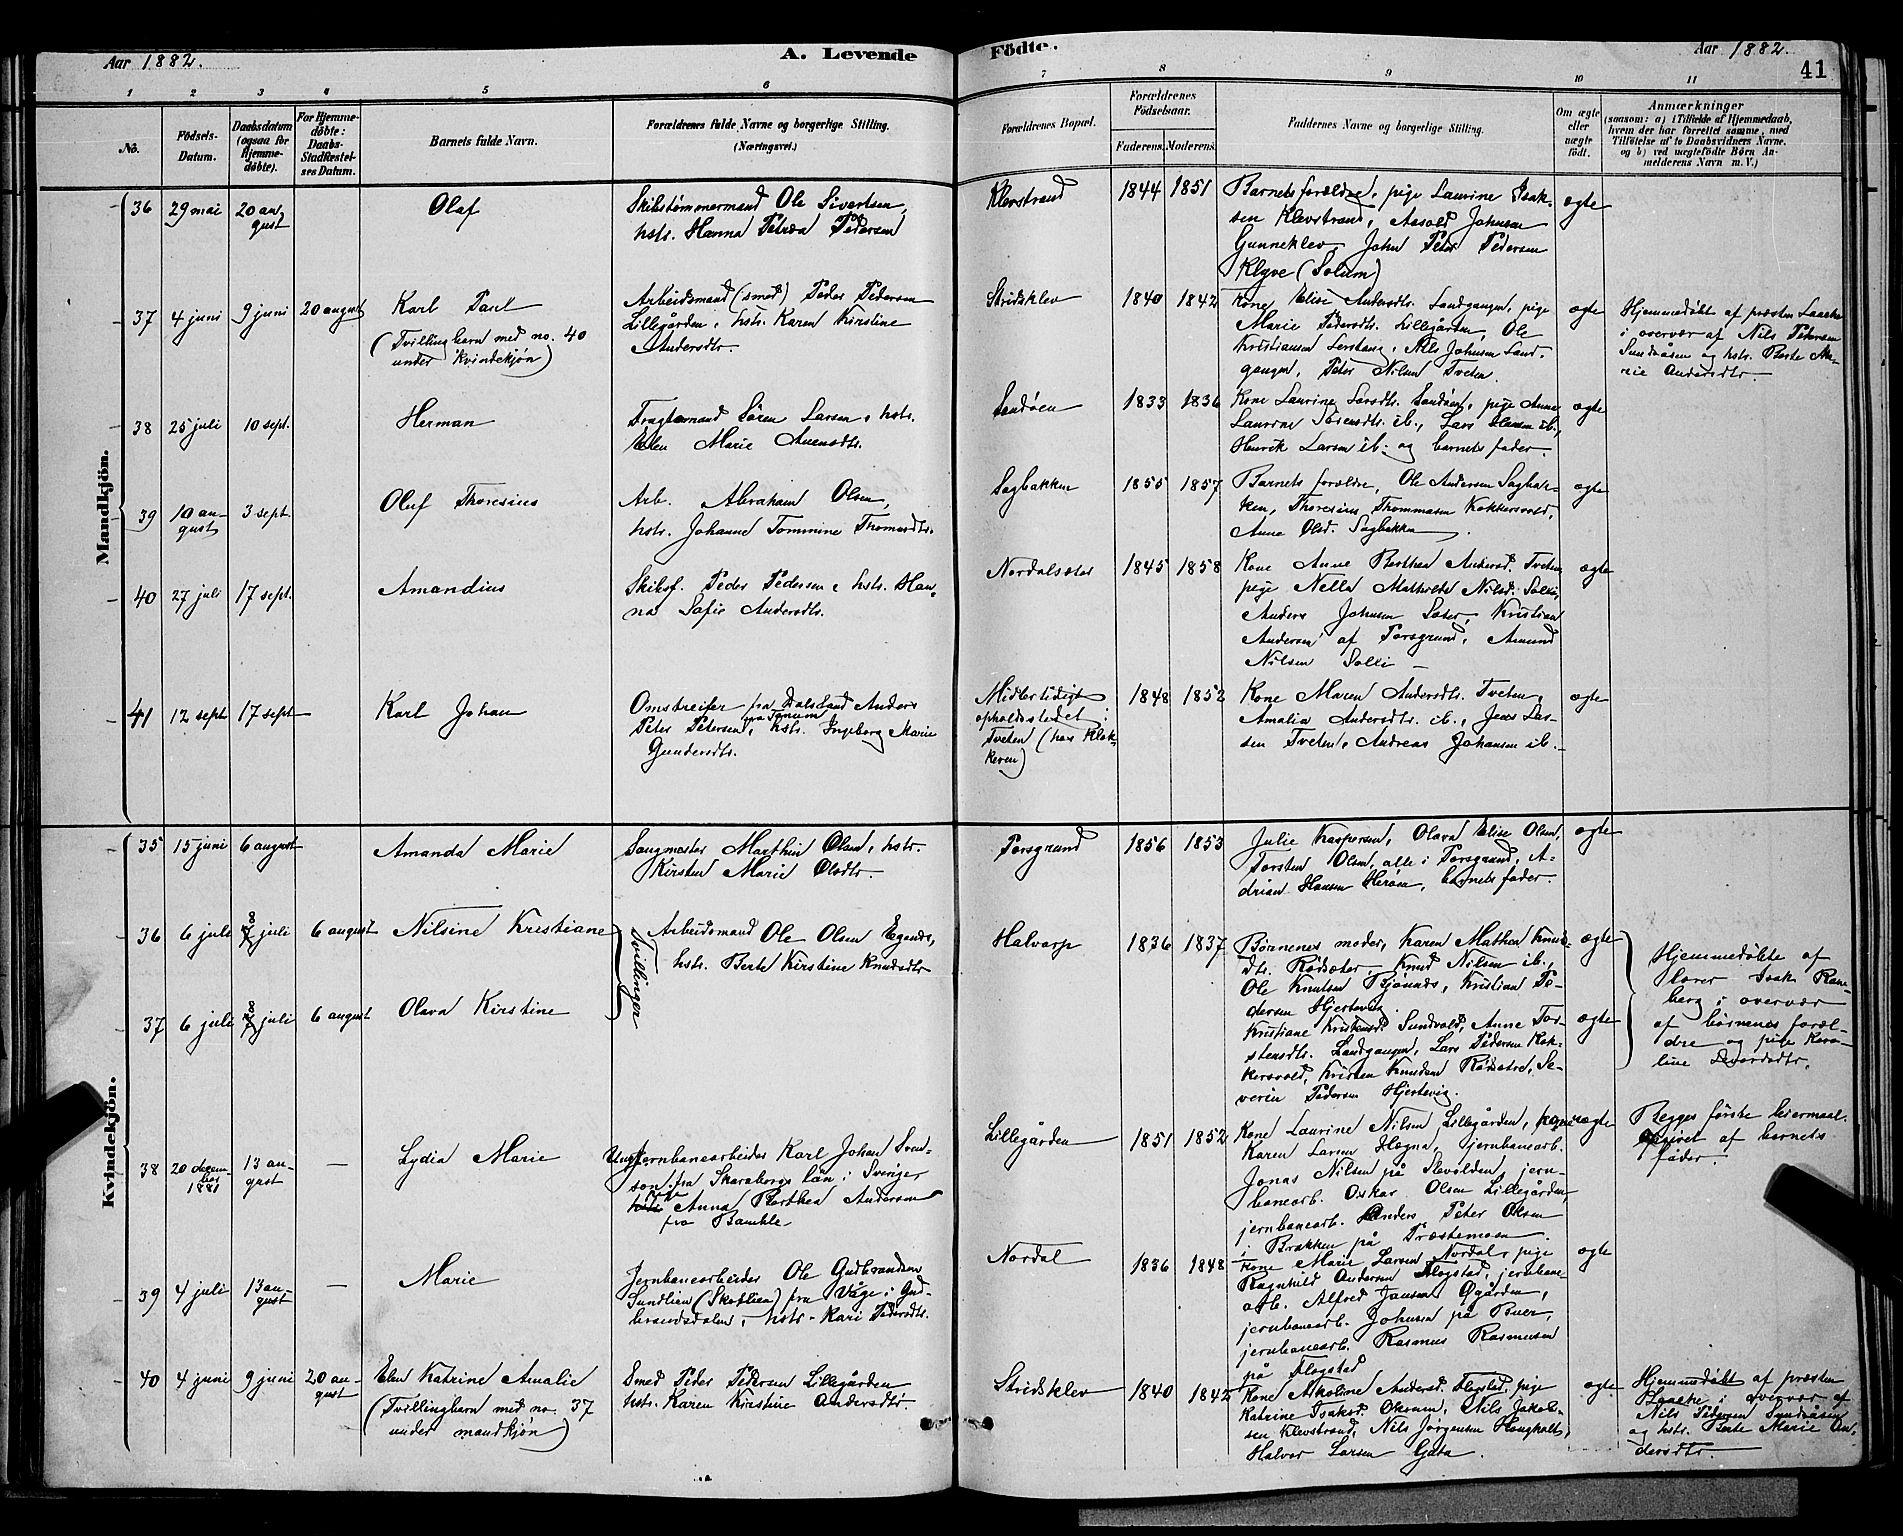 Aar 1882.
A. Levende
Födte.
Aar 1882.
41
1 2 3 4 5 6 7 8 9 10 11
No.
Födsels-
Datum.
Daabsdatum
(ogsaa for
Hjemme-
döbte).
For Hjemme-
döbte:
Daabs-
Stadfæstel-
ses Datum.
Barnets fulde Navn.
Forældrenes fulde Navne og borgerlige Stilling.
(Næringsvei.)
Forældrenes Bopæl.
Forældrenes
Födselsaar.
Faderens. Moderens.
Faddernes Navne og borgerlige Stilling.
Om ægte
eller
uægte
födt.
Anmærkninger
(saasom: a) i Tilfælde af Hjemmedaab,
hvem der har forrettet samme, med
Tilföielse af to Daabsvidners Navne.
og b) ved uægtefödte Börn An-
melderens Navn m. V.)
Mandkjön.
36
29 mai
20 au-
gust
Olaf
Skibstømmermand Ole Sivertsen,
hstr. Hanna Petrea Pedersen
Klevstrand
1844
1851
Barnets forældre, pige Laurine Isak-
sen Klevstrand, Aasold Johnsen
Gunneklev, John Peter Pedersen
Klyve (Solum)
ægte
37
4 juni
9 juni
20 august
Karl Paul
(Tvillingbarn med no. 40
under Kvindekjøn)
Arbeidsmand (smed) Peder Pedersen
Lillegården, hstr. Karen Kirstine
Andersdtr.
Stridsklev
1840
1842
Kone Elise Andersdtr. Landgangen, pige
Marie Pedersdtr. Lillegården, Ole
Kristiansen, Nils Johnsen Land-
gangen, Peter Nilsen Tveten.
ægte
Hjemmedøbt af prosten Laache
i overvær af Nils Petersen
Sundåsen og hstr. Berte Ma-
rie Andersdtr.
38
25 juli
10 sept.
Herman
Fragtemand Søren Larsen, hstr.
Elen Marie Auensdtr.
Sandøen
1833
1836
Kone Laurine Larsdtr. Sandøen, pige Anne
Laurine Sørensdtr. ib., Lars Hansen ib.,
Henrik Larsen ib. og barnets fader.
ægte
39
10 au-
gust
3 sept
Oluf Thoresius
Arb. Abraham Olsen,
hstr. Johanne Tommine Thomasdtr.
Sagbakken
1855
1857
Barnets forældre, Ole Andersen Sagbak-
ken, Thoresius Thommasen Kokkersvold,
Anne Olsd. Sagbakken.
ægte
40
27 juli
17 sept.
Amandius
Skibsf. Peder Pedersen, hstr. Han-
na Sofie Andersdtr.
Nordalsæter
1845
1858
Kone Anne Berthea Andersd. Tveten,
pige Nella Mathilde Nilsd. Solli,
Anders Johnsen Sæter, Kristian
Andersen af Porsgrund, Amund
Nilsen Solli
ægte
41
12 sept
17 sept
Karl Johan
Omstreifer fra Dalsland Anders
Peter Petersen, hstr. Ingeborg Marie
Gundersdtr.
Midlertidigt
opholdssted:
Tveten (hos Klok-
keren)
1848
1852
Kone Maren Andersdtr. Tveten,
Amalia Andersdtr. ib., Jens Lar-
sen Tveten, Andreas Johansen ib.
ægte
Kvindekjön.
35
15 juni
6 august
Amanda Marie
Saugmester Marthin Olsen, hstr.
Kirsten Marie Olsdtr.
Porsgrund
1856
1853
Julie Kaspersen, Olava Elise Olsen,
Torsten Olsen, alle i Porsgrund, A-
drian Hansen Herøen, barnets fader.
ægte
36
6 juli
8 juli
6 august
Nilsine Kristiane
Tvillinger
Arbeidsmand Ole Olsen
hstr. Berte Kirstine Knudsdtr
Halvarp
1836
1837
Børnenes moder, Karen Mathea Knud-
dtr. Rødsæter, Knud Nilsen ib.,
Ole Knutsen Bjønnes, Kristian Pe-
dersen Hjertevig
ægte
Hjemmedøbte af
lærer Isak Ram-
berg i overvær
af børnenes foræl-
dre og pige Karo-
line
37
6 juli
8 juli
6 august
Olava Kirstine
Kristiane Kristensd. Sundvold, Anne Tor-
stensdtr. Landgangen, Lars Pedersen Kok-
kersvold, Kristen Knudsen Rødsæter, Se-
verin Pedersen Hjertevig.
ægte
38
20 decem-
ber
1881
13 au-
gust
—
Lydia Marie
Jernbanearbeider Karl Johan Sven-
son fra Skaraborgs län i Sverige
Anna Berthea Andersen
fra Bamble
Lillegården
1851
1852
Kone Laurine Nilsen Lillegården,
Karen Larsen Hogna, jernbanearb.
Jonas Nilsen på Slevolden, jern-
banearb. Oskar Olsen Lillegården,
jernbanearb. Anders Peter Olsen
i Brakken på Præstemoen.
uægte
Begges første leiermaal.
Opgivet af barnets
fader.
39
4 juli
13 au-
gust
—
Marie
Jernbanearbeider Ole Gudbrandsen
Sundlien (Skotlien) fra Våge i Gud-
brandsdalen, hstr. Kari Pedersdtr.
Nordal
1836
1848
Kone Marie Larsen Nordal, pige
Ragnhild Andersen Flogstad, jernbane-
arb. Alfred Jansen Øgården,
jernbanearb. Johnsen på Buer,
jernbanearb. Rasmus Rasmusen
på Flogstad
ægte
40
4 juni
9 juni
20 au-
gust
Elen Katrine Amalie
(Tvillingbarn med no. 37
under mandkjøn)
Smed Peder Pedersen Lillegården
hstr. Karen Kirstine Andersdtr.
Stridsklev
1840
1842
Kone Nikoline Andersd. Flogstad, pige
Katrine Isaksd. Oksum, Nils Jakob-
sen Klevstrand, Nils Jørgensen Hougholt,
Halvor Larsen Gata.
ægte
Hjemmedøbt af prosten
Laache i overvær af
Nils Pedersen Sundåsen
og hstr. Berte Marie An-
dersdtr.